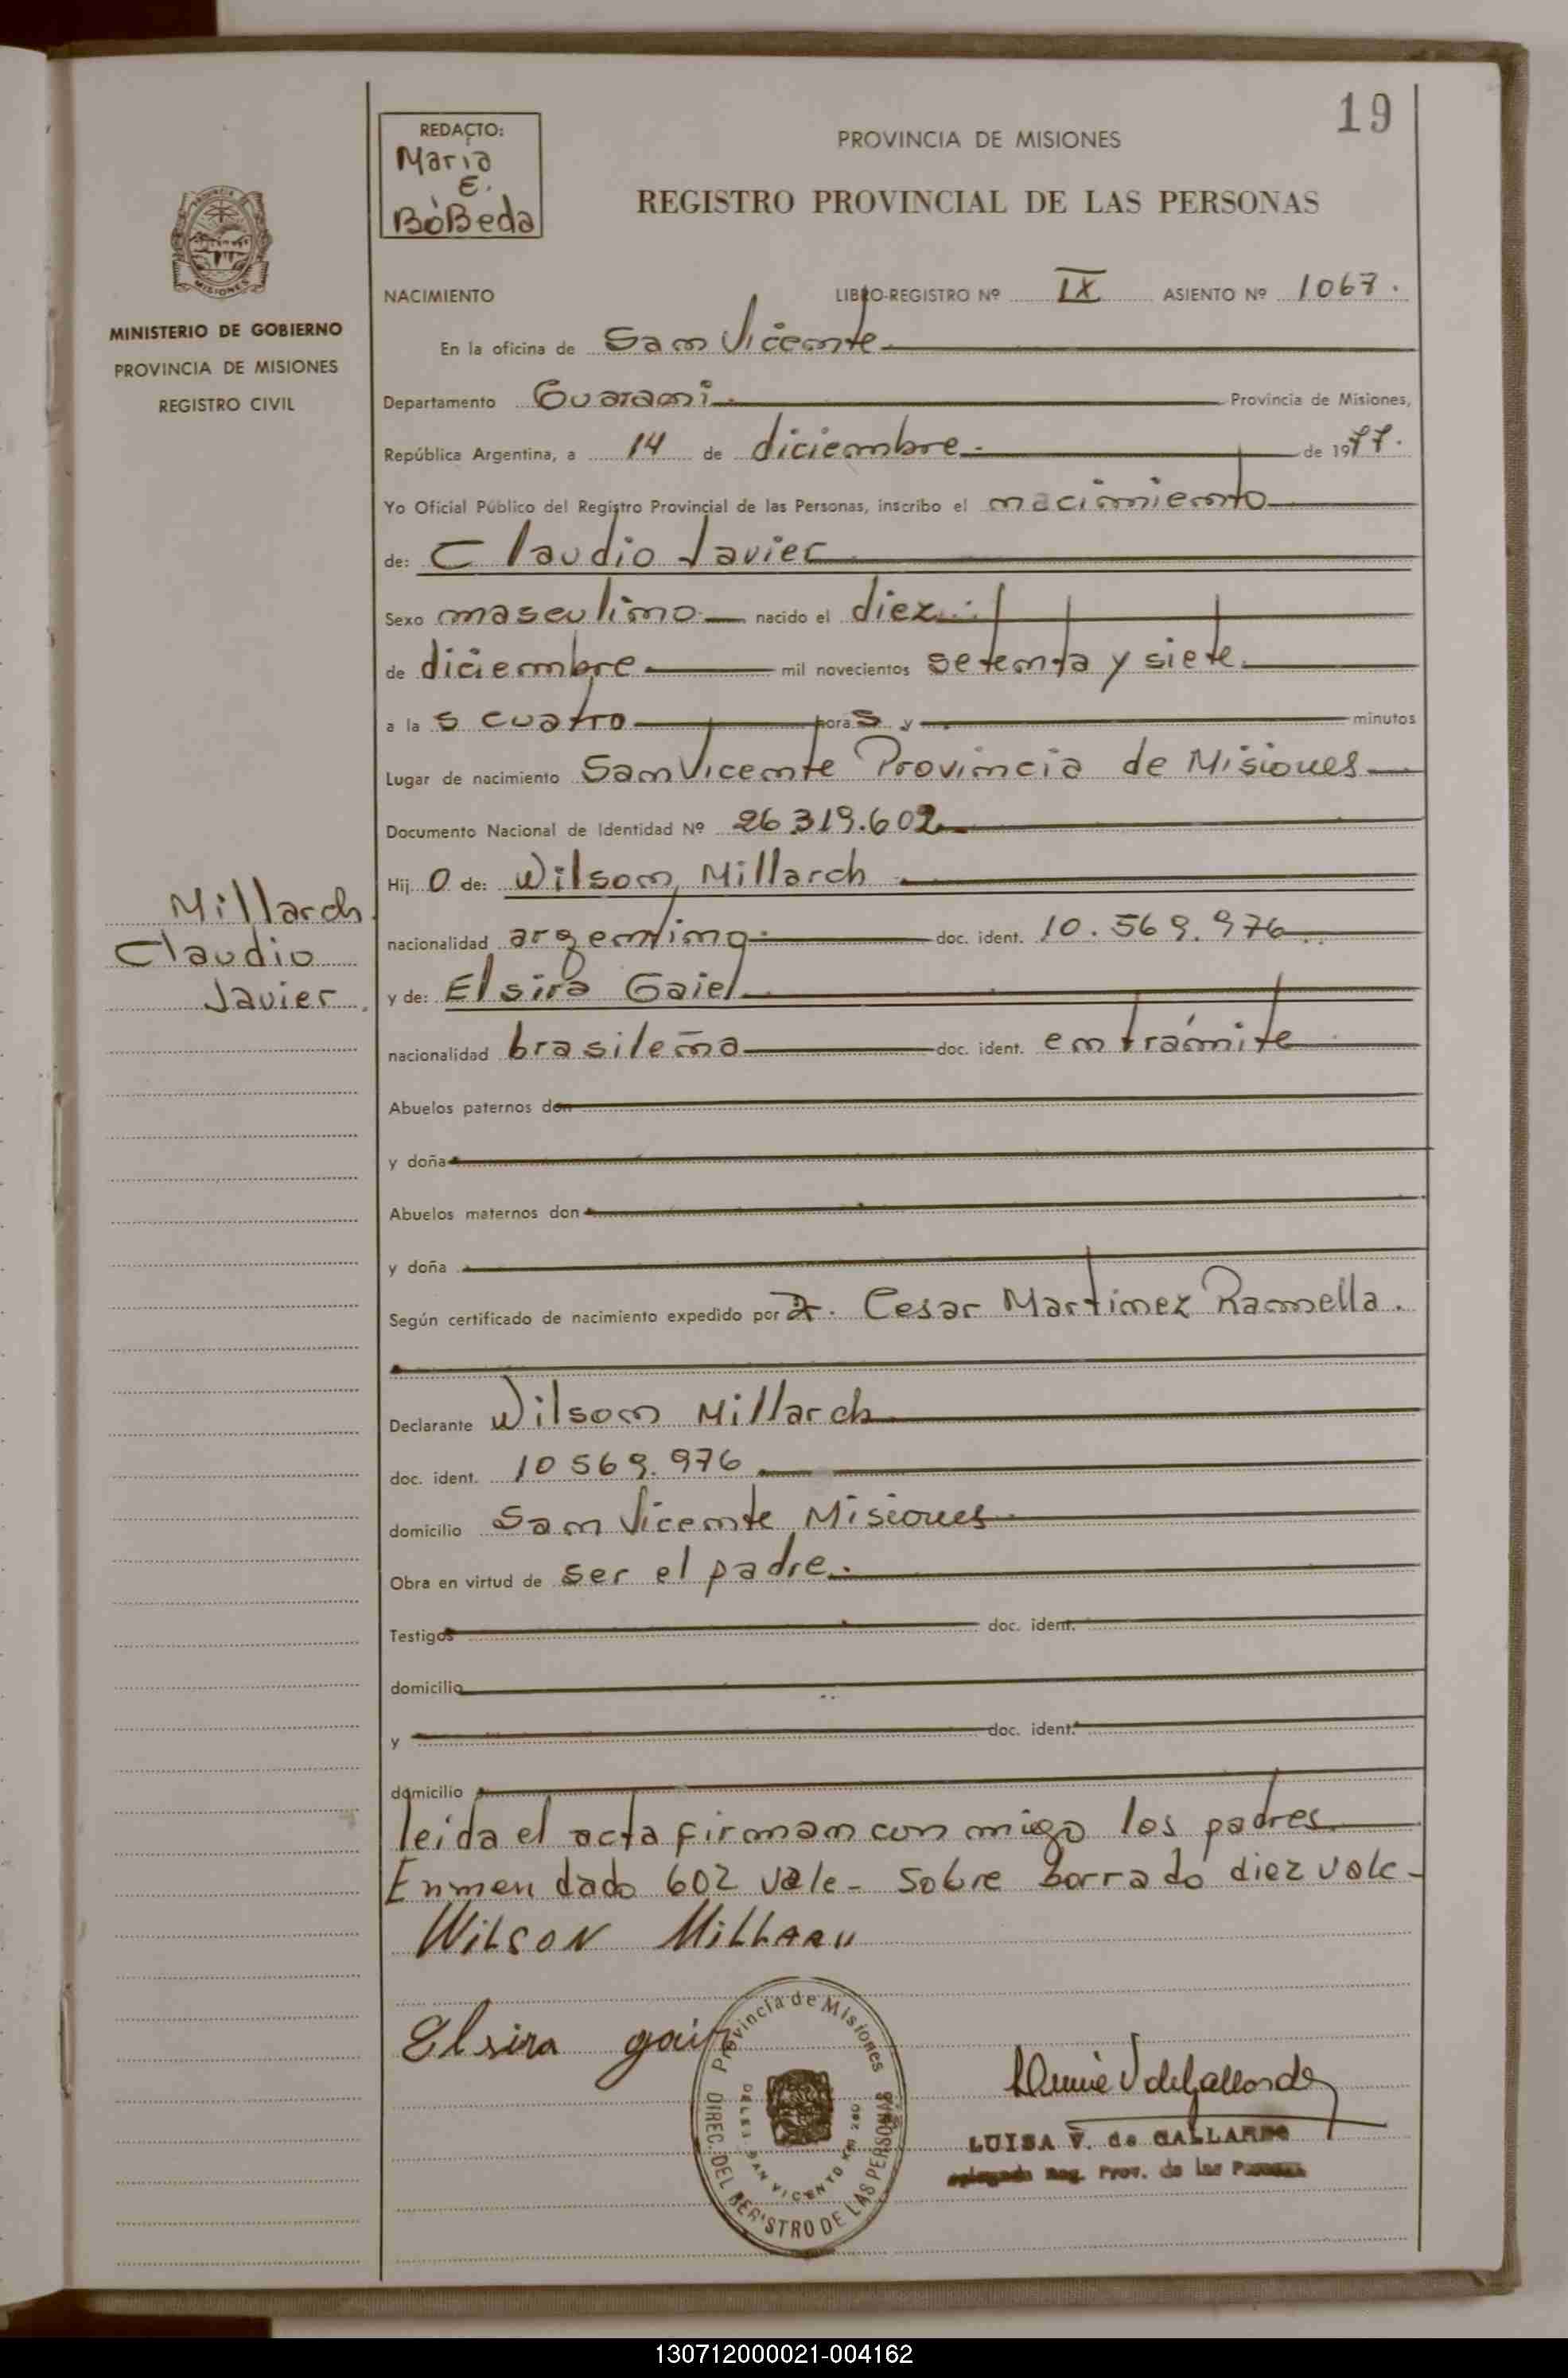 19
REDACTO:
Maria
E.
BóBeda
PROVINCIA DE MISIONES
REGISTRO PROVINCIAL DE LAS PERSONAS
MISIONES
MINISTERIO DE GOBIERNO
PROVINCIA DE MISIONES
REGISTRO CIVIL
NACIMIENTO LIBRO-REGISTRO Nº IX ASIENTO Nº 1067.
En la oficina de San Vicente
Departamento Guarani Provincia de Misiones,
República Argentina, a 14 de diciembre de 1977.
Yo Oficial Público del Registro Provincial de las Personas, inscribo el nacimiento
de: Claudio Javier
Sexo masculino nacido el diez
de diciembre mil novecientos setenta y siete
a las cuatro horas y minutos
Lugar de nacimiento San Vicente Provincia de Misiones
Documento Nacional de Identidad Nº 26.319.602
Hijo de: Wilson Millarch
nacionalidad argentino doc. ident. 10.569.976
y de: Elsira Gaiel
nacionalidad brasileña doc. ident. en trámite
Millarch
Claudio
Javier
Abuelos paternos don
y doña
Abuelos maternos don
y doña
Según certificado de nacimiento expedido por Dr. Cesar Martinez Ramella.
Declarante Wilson Millarch
doc. ident. 10569.976
domicilio San Vicente Misiones
Obra en virtud de ser el padre.
Testigos doc. ident.
domicilio
y doc. ident.
domicilio
leida el acta firman con migo los padres
Enmendado 602 vale - Sobre borrado diez vale -
WILSON MILLARH
Elsira
Provincia de Misiones
DIREC. DEL REGISTRO DE LAS PERSONAS
LUISA V. de GALLARDO
Reg. Prov. de las Personas
130712000021-004162